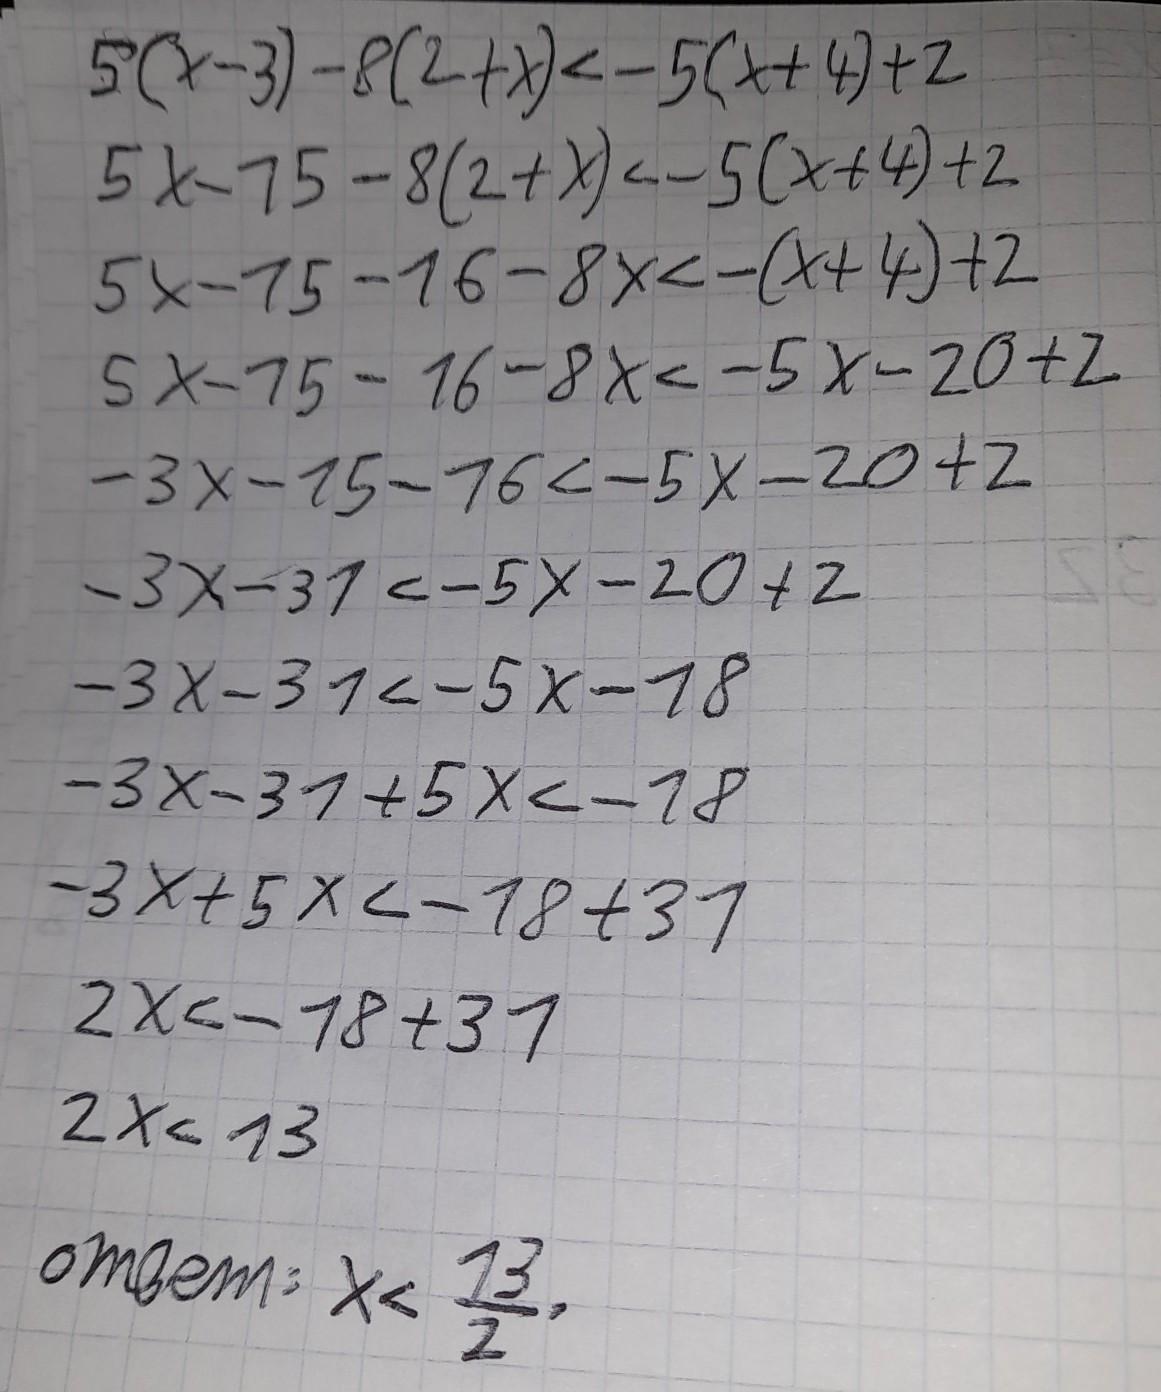 5(x-3)-8(2+x)<-5(x+4)+2
5x-15-8(2+x)<-5(x+4)+2
5x-15-16-8x<-(x+4)+2
5x-15-16-8x<-5x-20+2
-3x-15-16<-5x-20+2
-3x-31<-5x-20+2
-3x-31<-5x-18
-3x-31+5x<-18
-3x+5x<-18+31
2x<-18+31
2x<13
ответ: x<13/2.